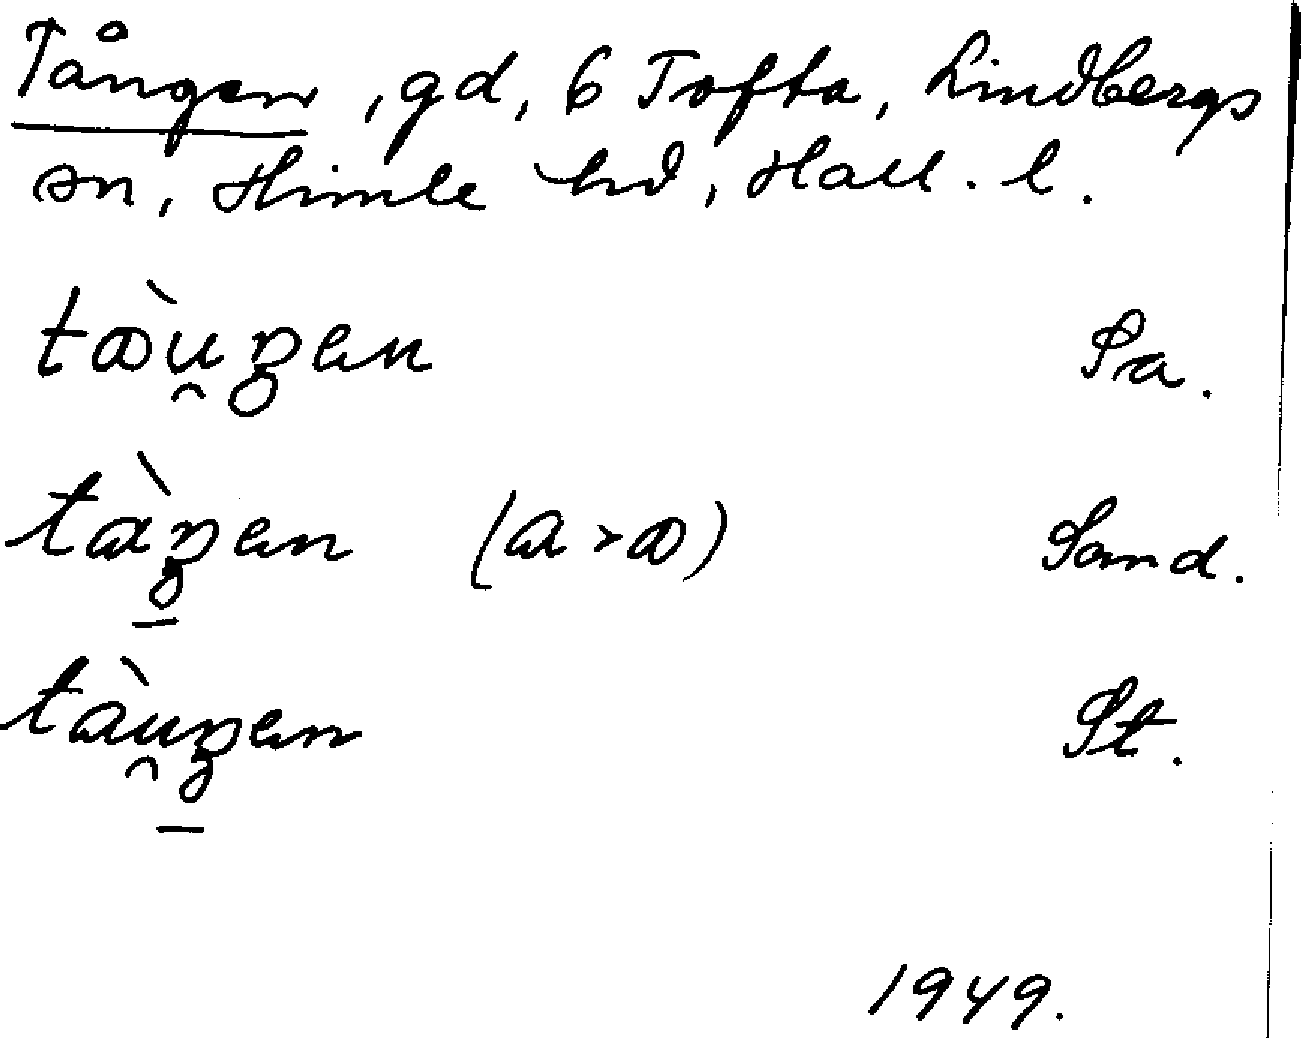 Tången, gd, 6 Tofta, Lindbergs
sn, Himle hd, Hall. l.
tɷ̀u̯ŋen Sa.
tàŋ̱en (a > ɷ) Sand.
tàu̯ŋ̱en St.
1949.